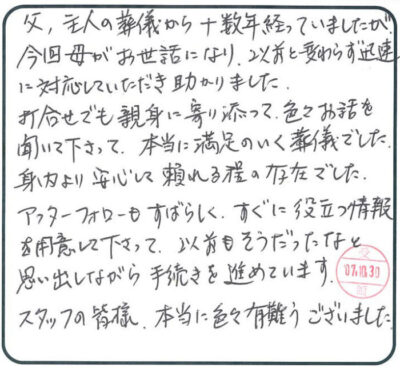 父、主人の葬儀から十数年経っていましたが
今回母がお世話になり、以前と変わらず迅速
に対応していただき助かりました。
打合せでも親身に寄り添って、色々お話を
聞いて下さって、本当に満足のいく葬儀でした。
身内より安心して頼れる程の存在でした。
アフターフォローもすばらしく、すぐに役立つ情報
を用意して下さって、以前もそうだったなと
思い出しながら手続きを進めています。
07.10.30
スタッフの皆様、本当に色々有難うございました